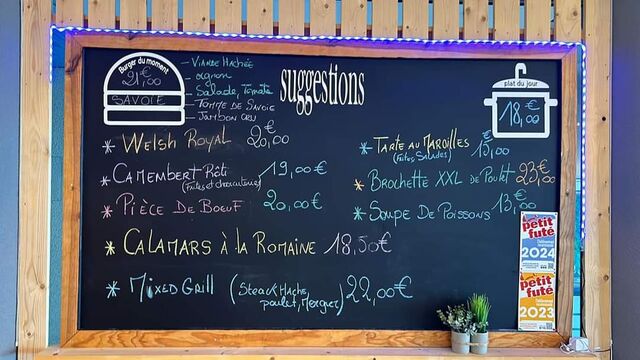 Burger du moment
21,00 €
SAVOIE
- VIANDE HACHÉE
- oignon
- Salade, Tomate
- TOMME DE SAVOIE
- JAMBON CRU
suggestions
plat du jour
18,00 €
* WELSH ROYAL 20,00
* CAMEMBERT RÔTI 19,00 €
(Frites et charcuterie)
* PIÈCE DE BOEUF 20,00 €
* CALAMARS À LA ROMAINE 18,50 €
* MIXED GRILL (STEACK HACHE, poulet, MERGUEZ) 22,00 €
* TARTE AU MAROILLES 15,00
(Frites, Salades)
* BROCHETTE XXL DE POULET 23,00
* SOUPE DE POISSONS 13,00 €
petit futé
2024
petit futé
2023